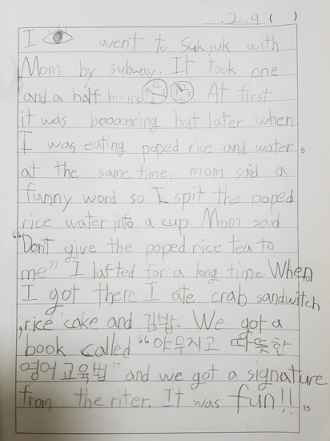 . 2. 9 ( )
I went to Sukjuk with
Mom by subway. It took one
and a half hours. At first
it was beooooring but later when
I was eating poped rice and water
at the same time, mom said a
funny word so I spit the poped
rice water into a cup. Mom said
"Dont give the poped rice tea to
me" I lafted for a long time When
I got there I ate crab sandwitch
,rice cake and 김밥. We got a
book called "야무지고 따뜻한
영어교육법" and we got a signature
from the riter. It was fun!!